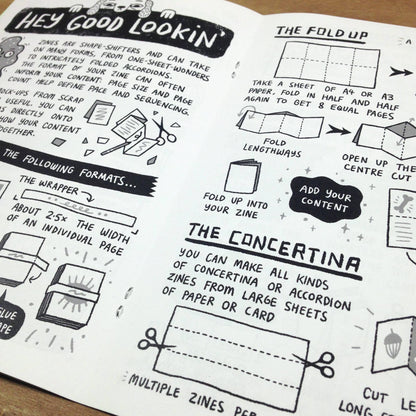 HEY GOOD LOOKIN'
ZINES ARE SHAPE-SHIFTERS AND CAN TAKE
ON MANY FORMS, FROM ONE-SHEET-WONDERS
TO INTRICATELY FOLDED ACCORDIONS.
THE FORMAT OF YOUR ZINE CAN OFTEN
INFORM YOUR CONTENT: PAGE SIZE AND PAGE
COUNT HELP DEFINE PACE AND SEQUENCING.
OCK-UPS FROM SCRAP
USEFUL. YOU CAN
DIRECTLY ONTO
HOW YOUR CONTENT
OGETHER.
THE FOLLOWING FORMATS...
THE WRAPPER
ABOUT 2.5x THE WIDTH
OF AN INDIVIDUAL PAGE
GLUE
THE FOLD UP
TAKE A SHEET OF A4 OR A3
PAPER. FOLD IN HALF AND HALF
AGAIN TO GET 8 EQUAL PAGES
FOLD
LENGTHWAYS
OPEN UP
CENTRE
CUT
FOLD UP INTO
YOUR ZINE
ADD YOUR
CONTENT
THE CONCERTINA
YOU CAN MAKE ALL KINDS
OF CONCERTINA OR ACCORDION
ZINES FROM LARGE SHEETS
OF PAPER OR CARD
MULTIPLE ZINES PER
CUT
LONG